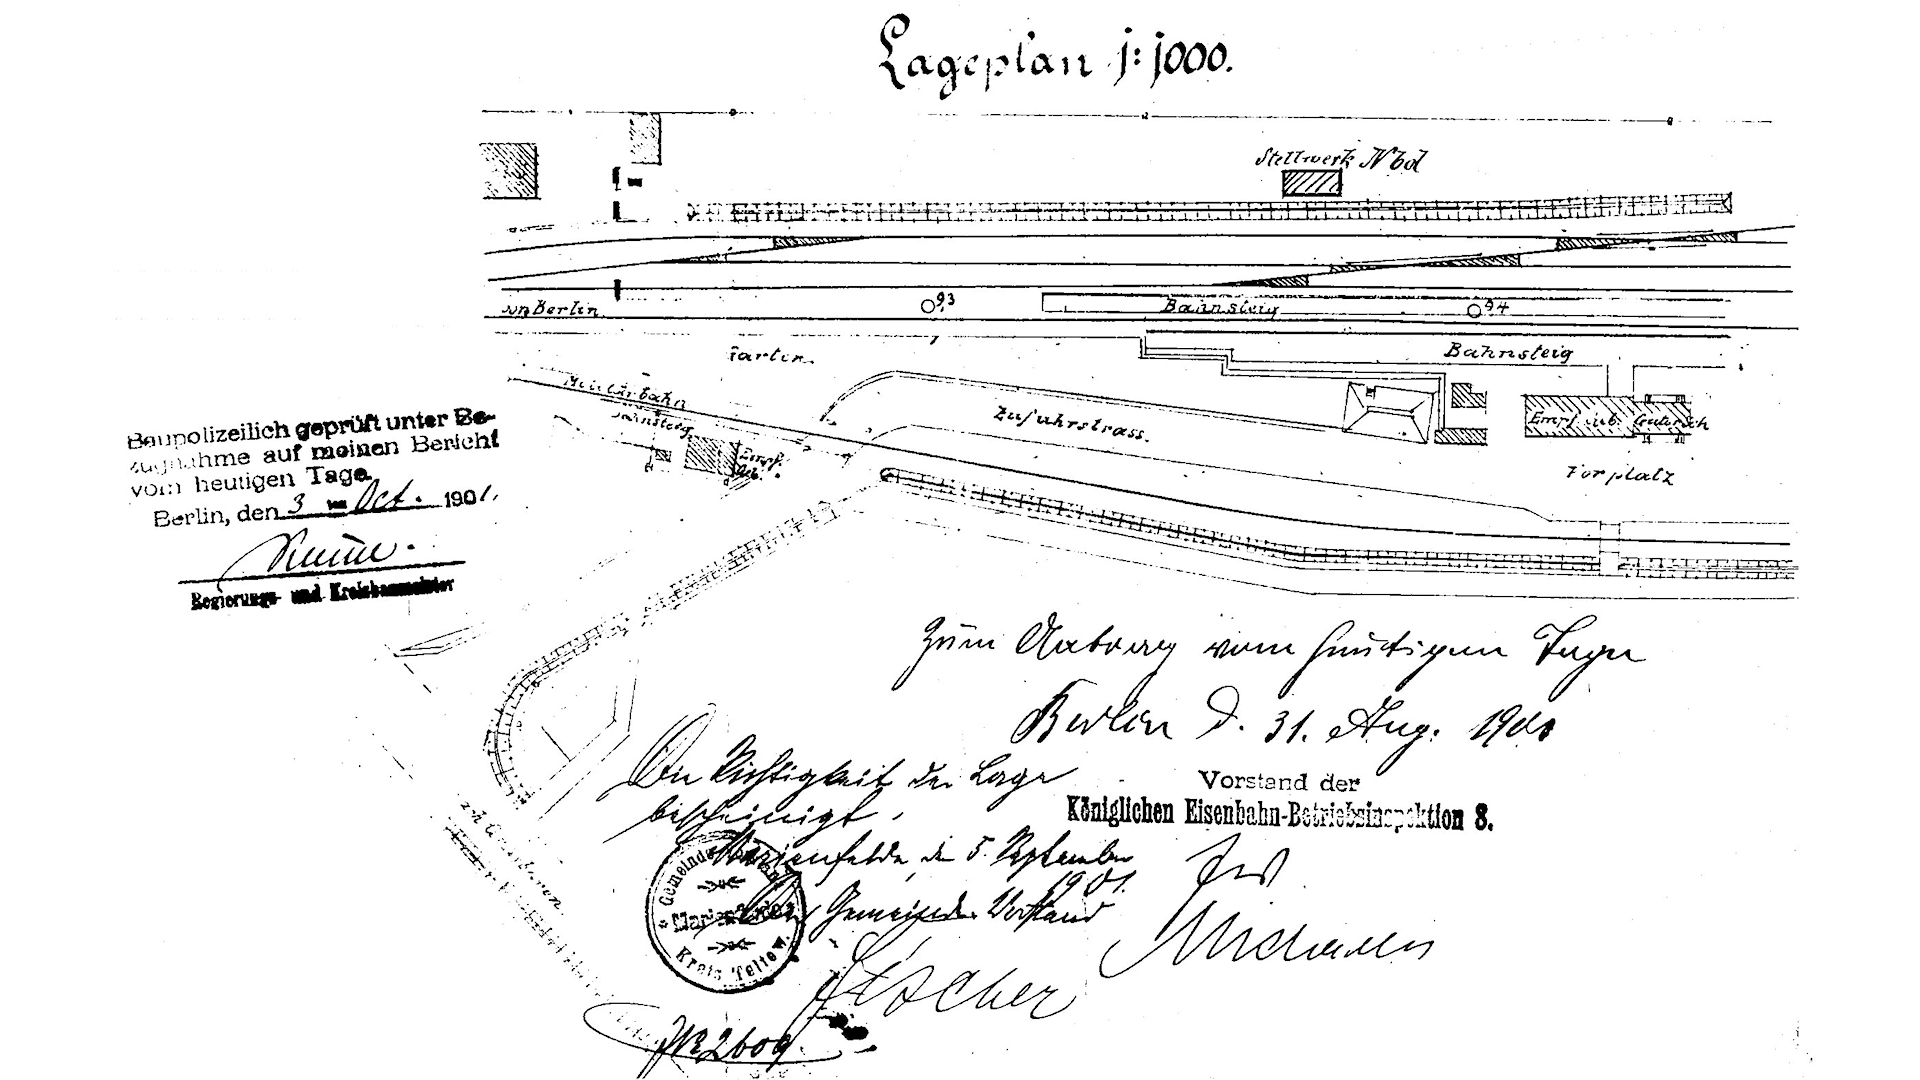 Lageplan 1:1000.
Stellwerk Nbd
von Berlin
9,3
Bahnsteig
94
Garten.
Bahnsteig
Militärbahn
Bahnsteig
Empf.
Geb.
Zufuhrstrass.
Empf. Geb. Güter
Vorplatz
Baupolizeilich geprüft unter Be-
zugnahme auf meinen Bericht
vom heutigen Tage.
Berlin, den 3 ten Oct. 1901.
Regierungs- und Kreisbaumeister
Zum Antrag vom heutigen Tage
Berlin d. 31. Aug. 1901
Vorstand der
Königlichen Eisenbahn-Betriebsinspektion 8.
Die Richtigkeit der Lage
bescheinigt.
Marienfelde, den 5. September
1901.
Der Gemeinde Vorstand
Fischer
Gemeinde Vorstand
Marienfelde
Kreis Teltow.
№ 2609.